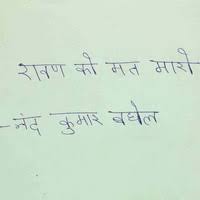 रावण को मत मारो
- नंद कुमार बघेल